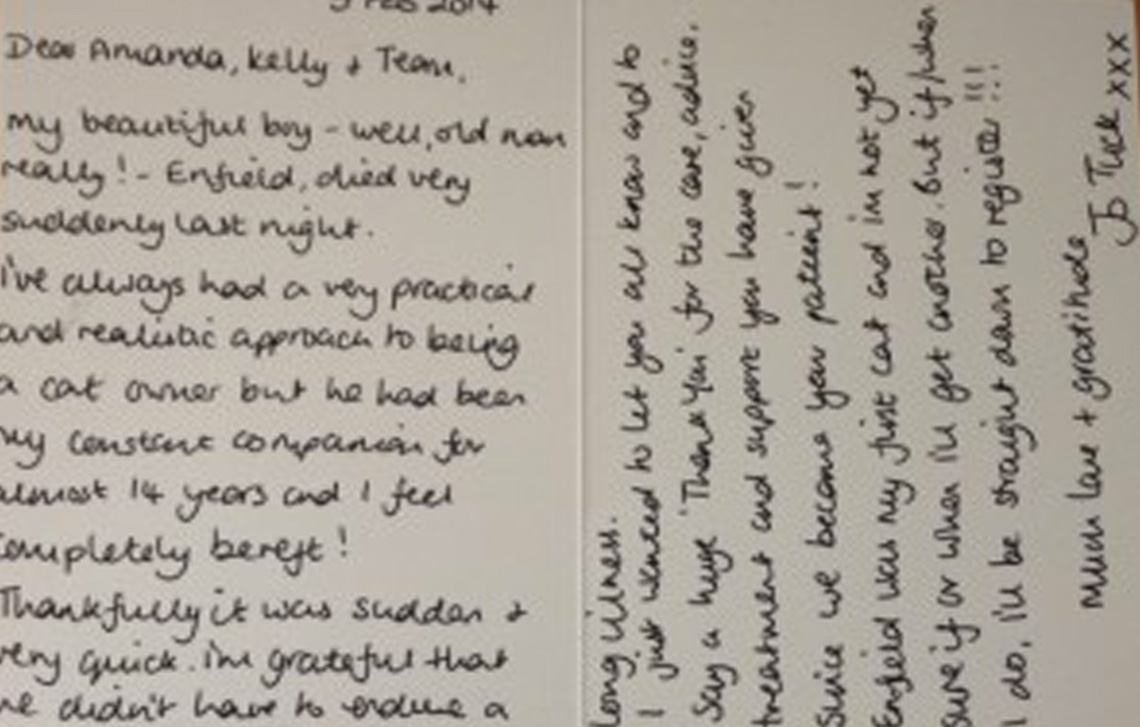 Feb 2014
Dear Amanda, Kelly + Team,
my beautiful boy - well, old man
really! - Enfield, died very
suddenly last night.
I've always had a very practical
and realistic approach to being
a cat owner but he had been
my constant companion for
almost 14 years and I feel
completely bereft!
Thankfully it was sudden +
very quick. I'm grateful that
he didn't have to endure a
long illness.
I just wanted to let you all know and to
say a huge 'Thank You' for the care, advice,
treatment and support you have given
since we became your patient!
Enfield was my first cat and I'm not yet
sure if or when I'll get another. But if/when
I do, I'll be straight down to register!!!
Much love + gratitude
Jo Tuck xxx